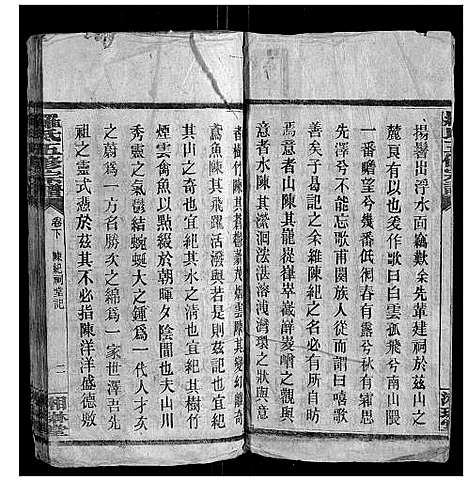 揚鬐出浮水面竊歎矣先輩建祠於茲山之
麓良有以也爰作歌曰白雲孤飛兮南山隈
一番瞻望兮幾番低徊春有露兮秋有霜思
先澤兮不能忘歌甫闋族人從而謂曰嘻歌
善矣子易記之余維陳紀之名必有所自昉
意者山陳其巃嵸嶵巖嶭嵏嶒之觀與
意者水陳其瀠洄湛溶洩灣環之狀與意
者樹竹陳其蒼翠煙雲陳其變幻離奇
鳶魚陳其飛躍活潑與若是則茲記也宜紀
其山之奇也宜紀其水之清也宜紀其樹竹
煙雲禽魚以點綴於朝暉夕陰間也夫山川
秀靈之氣鬱結蜿蜒大之鍾爲一代人才次
之蔚爲一方名勝次之綿爲一家世澤吾先
祖之靈式憑於茲其不必指陳洋洋盛德敷
羅氏五修宗譜
卷下
陳紀祠堂記
二